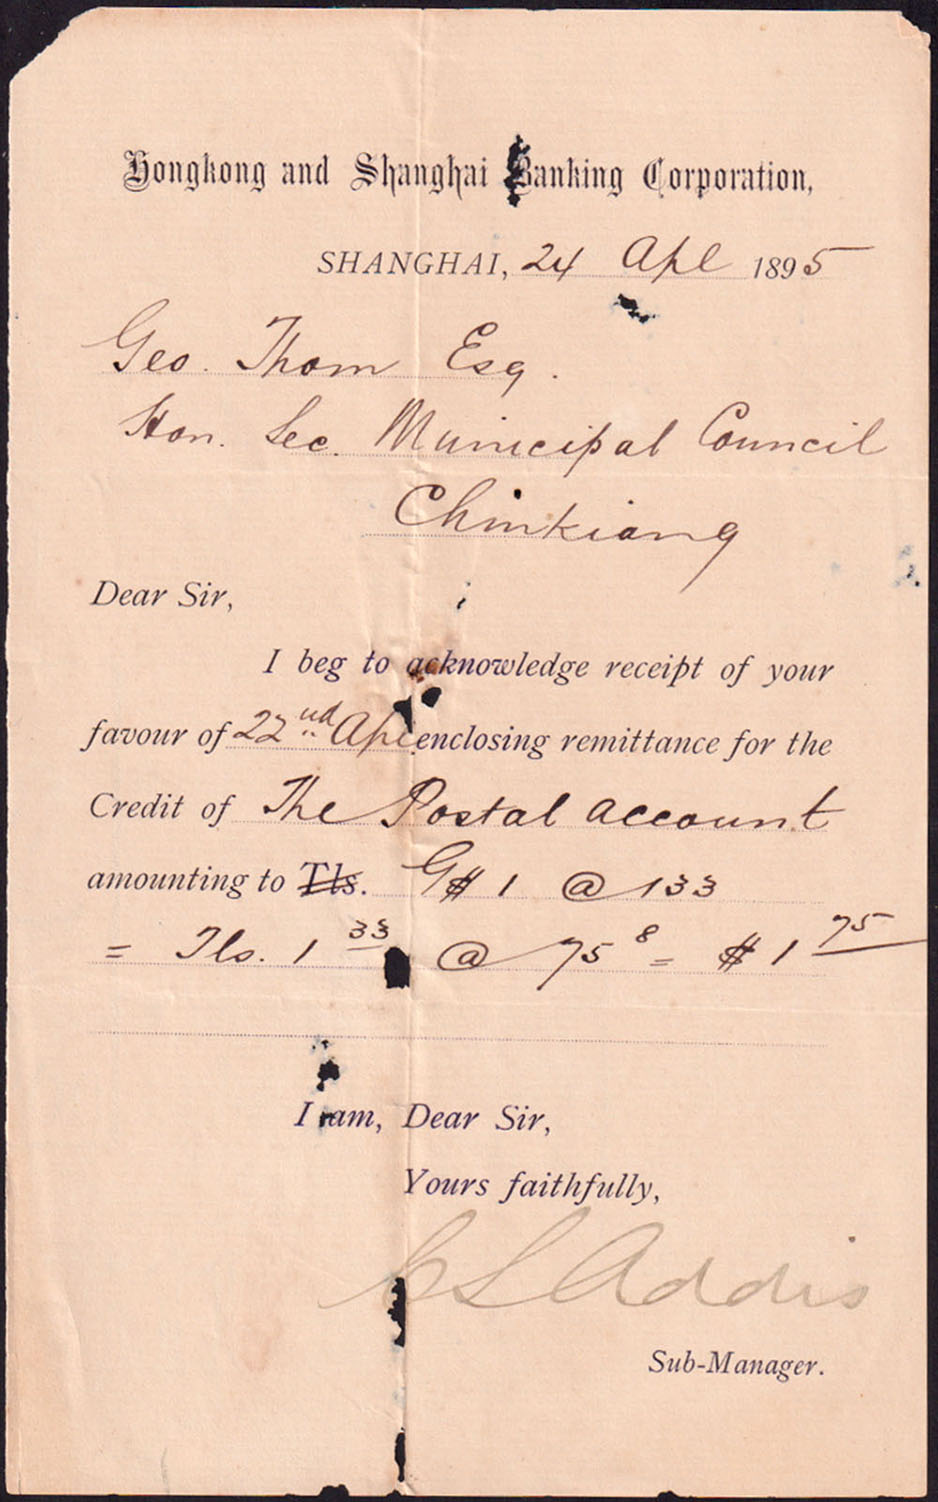 Hongkong and Shanghai Banking Corporation,
SHANGHAI, 24 Apl 1895
Geo. Thom Esq.
Hon. Sec. Municipal Council
Chinkiang
Dear Sir,
I beg to acknowledge receipt of your
favour of 22nd Apl enclosing remittance for the
Credit of The Postal account
amounting to Tls. G$ 1 @ 133
= Tls. 1 33 @ 75 8 = $ 1 75
I am, Dear Sir,
Yours faithfully,
C S Addis
Sub-Manager.